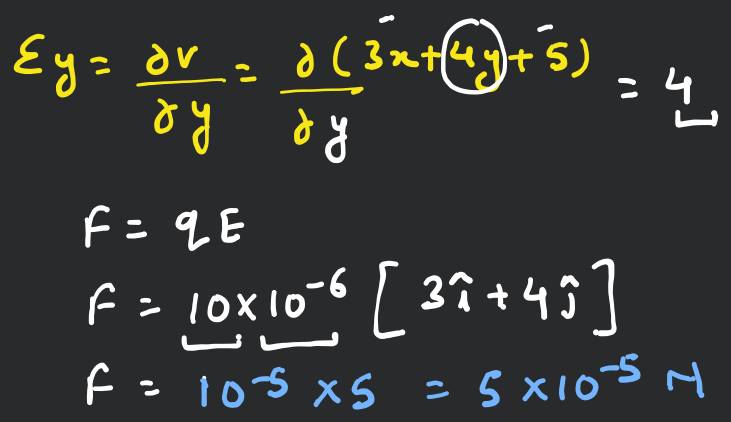 Ey = ∂v/∂y = ∂(3x+4y+5)/∂y = 4
F = qE
F = 10×10⁻⁶ [3î+4ĵ]
F = 10⁻⁵ ×5 = 5×10⁻⁵ N